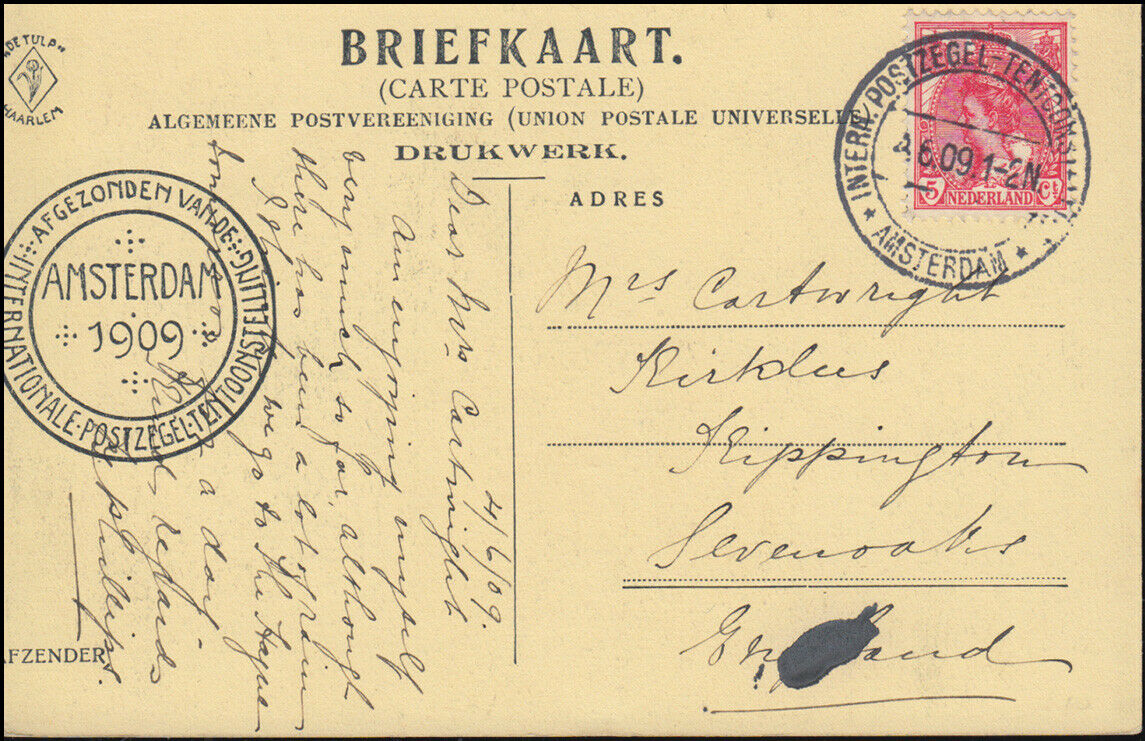 "DE TULP"
HAARLEM
BRIEFKAART.
(CARTE POSTALE)
ALGEMEENE POSTVEREENIGING (UNION POSTALE UNIVERSELLE)
DRUKWERK.
ADRES
INTERN. POSTZEGEL-TENTOONST
.6.09.1-2N
* AMSTERDAM *
5 Ct
NEDERLAND
AFGEZONDEN VAN DE
INTERNATIONALE·POSTZEGEL·TENTOONSTELLING
AMSTERDAM
1909
4/6/09.
Dear Mrs Cartwright
Am enjoying myself
very much so far, although
there has been a lot of rain
I go we go to The Hague
for a day
Kind regards
Phillips.
Mrs Cartwright
Kirklees
Kippington
Sevenoaks
England
AFZENDER